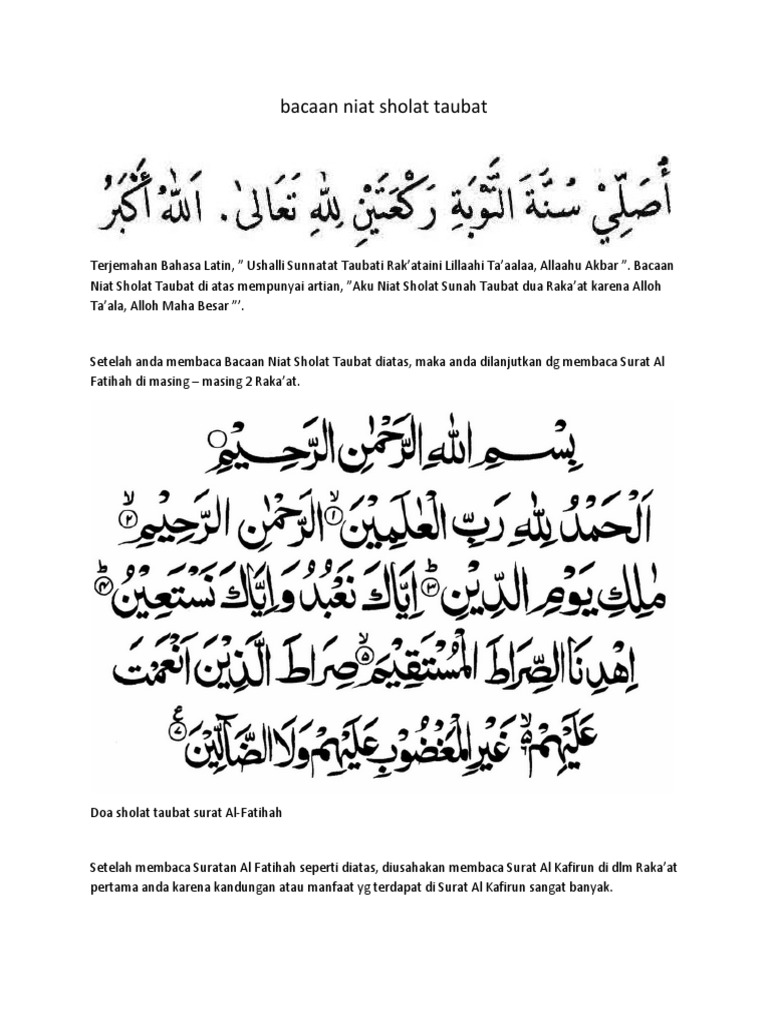 bacaan niat sholat taubat
أُصَلِّيْ سُنَّةَ التَّوْبَةِ رَكْعَتَيْنِ لِلّٰهِ تَعَالىٰ. اَللهُ أَكْبَرُ
Terjemahan Bahasa Latin, ” Ushalli Sunnatat Taubati Rak’ataini Lillaahi Ta’aalaa, Allaahu Akbar ”. Bacaan
Niat Sholat Taubat di atas mempunyai artian, ”Aku Niat Sholat Sunah Taubat dua Raka’at karena Alloh
Ta’ala, Alloh Maha Besar ”’.
Setelah anda membaca Bacaan Niat Sholat Taubat diatas, maka anda dilanjutkan dg membaca Surat Al
Fatihah di masing – masing 2 Raka’at.
بِسْمِ اللهِ الرَّحْمٰنِ الرَّحِيْمِ
اَلْحَمْدُ لِلّٰهِ رَبِّ الْعٰلَمِيْنَ ۙ﴿١﴾ الرَّحْمٰنِ الرَّحِيْمِ ۙ﴿٢﴾
مٰلِكِ يَوْمِ الدِّيْنِ ۗ﴿٣﴾ اِيَّاكَ نَعْبُدُ وَاِيَّاكَ نَسْتَعِيْنُ ۗ﴿٤﴾
اِهْدِنَا الصِّرَاطَ الْمُسْتَقِيْمَ ۙ﴿٥﴾ صِرَاطَ الَّذِيْنَ اَنْعَمْتَ
عَلَيْهِمْ ۙ﴿٦﴾ غَيْرِ الْمَغْضُوْبِ عَلَيْهِمْ وَلَا الضَّاۤلِّيْنَ ﴿٧﴾
Doa sholat taubat surat Al-Fatihah
Setelah membaca Suratan Al Fatihah seperti diatas, diusahakan membaca Surat Al Kafirun di dlm Raka’at
pertama anda karena kandungan atau manfaat yg terdapat di Surat Al Kafirun sangat banyak.